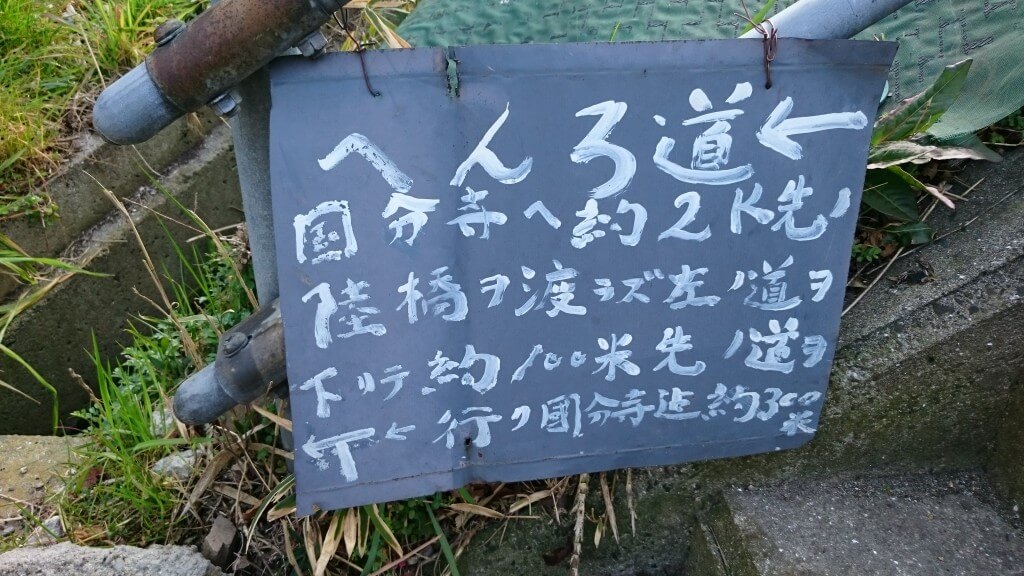 へんろ道←
国分寺へ約2K先ノ
陸橋ヲ渡ラズ左ノ道ヲ
下リテ約100米先ノ道ヲ
←行ク國分寺迠約300米